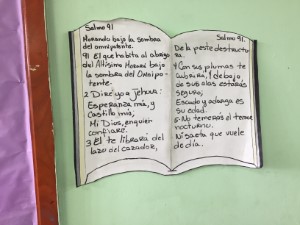 Salmo 91
Morando bajo la sombra
del omnipotente.
91 El que habita al abrigo
del Altísimo Morará bajo
la sombra del Omnipo-
tente.
2 Diré yo a Jehová:
Esperanza mía, y
Castillo mío,
Mi Dios, en quien
confiaré.
3 El te librará del
lazo del cazador,
Salmo 91.
De la peste destructo
ra.
4 Con sus plumas te
Cubrirá, y debajo
de sus alas estarás
seguro;
Escudo y adarga es
su edad.
5. No temerás el temor
nocturno.
Ni saeta que vuele
de día.